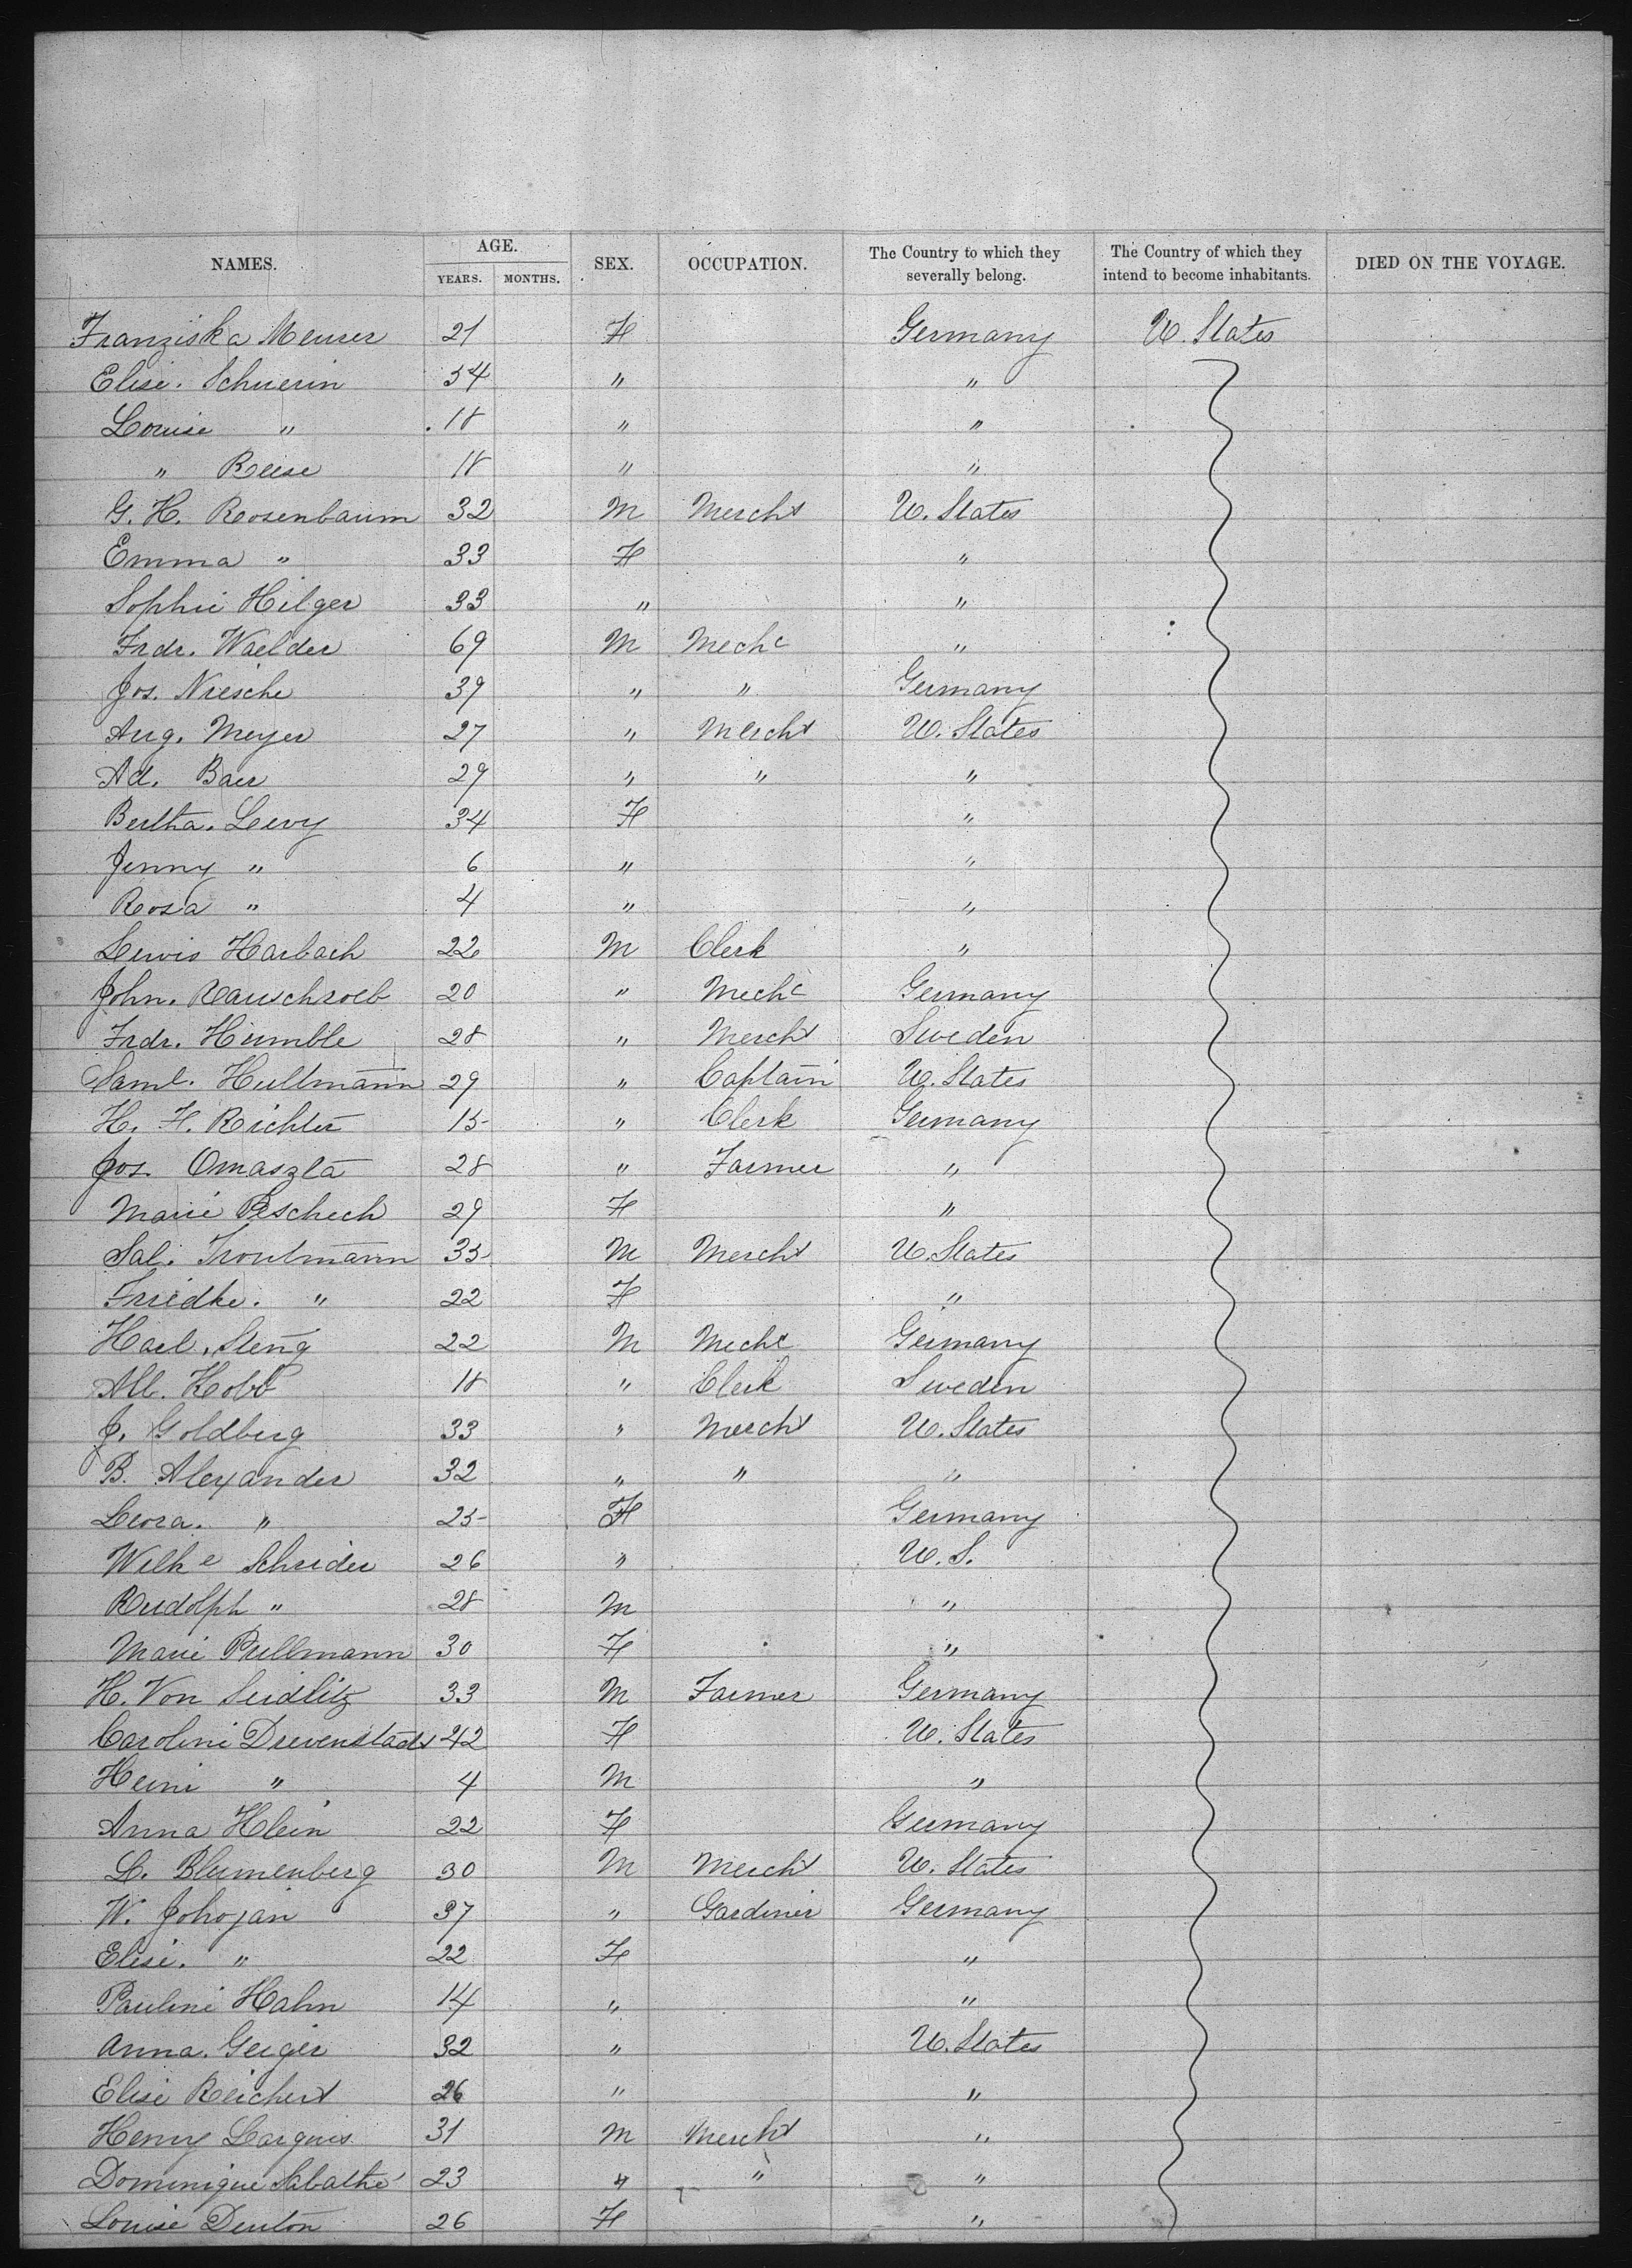 NAMES. AGE. SEX. OCCUPATION. The Country to which they severally belong. The Country of which they intend to become inhabitants. DIED ON THE VOYAGE.
YEARS. MONTHS.
Franziska Meurer 21 F Germany U. States
Elise. Schwerin 34 " "
Louise " 18 " "
" Reese 18 " "
G. H. Rosenbaum 32 M Mercht U. States
Emma " 33 F "
Sophie Hilger 33 " "
Frdr. Waelder 69 M Mechc "
Jos. Niesche 39 " " Germany
Aug. Meyer 27 " Mercht U. States
Ad. Baer 29 " " "
Bertha. Levy 34 F "
Jenny " 6 " "
Rosa " 4 " "
Lewis Harbach 22 M Clerk "
John. Rauschrolb 20 " Mechc Germany
Frdr. Humble 28 " Mercht Sweden
Saml. Hullmann 29 " Captain U. States
H. F. Richter 15 " Clerk Germany
Jos. Omaszta 28 " Farmer "
Marie Peschech 29 F "
Sal. Troutmann 35 M Mercht U. States
Friedke. " 22 F "
Karl. Steng 22 M Mechc Germany
Alb. Kobb 18 " Clerk Sweden
J. Goldberg 33 " Mercht U. States
B. Alexander 32 " " "
Leora. " 25 F Germany
Wilhe Schrider 26 " U. S.
Rudolph " 28 M "
Marie Pullmann 30 F "
H. Von Seidlitz 33 M Farmer Germany
Caroline Drevenstadt 42 F U. States
Heini " 4 M "
Anna Klein 22 F Germany
L. Blumenberg 30 M Mercht U. States
W. Johojan 37 " Gardiner Germany
Elise. " 22 F "
Pauline Hahn 14 " "
Anna. Geiger 32 " U. States
Elise Reichert 26 " "
Henry Larquis 31 M Mercht "
Dominique Sabathé 23 " " "
Louise Denton 26 F "